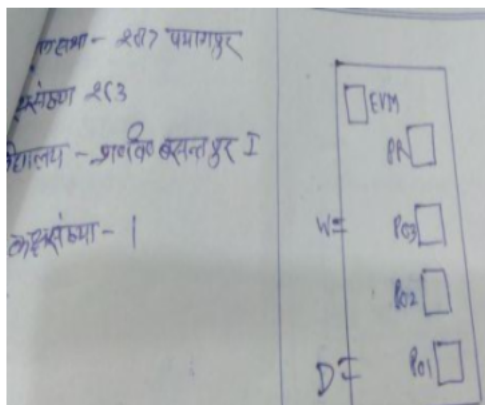 २८७ पयागपुर
२९३
- प्रा०वि० बसन्तपुर I
कक्षसंख्या - 1
EVM
PR
W=
PO3
PO2
D=
PO1